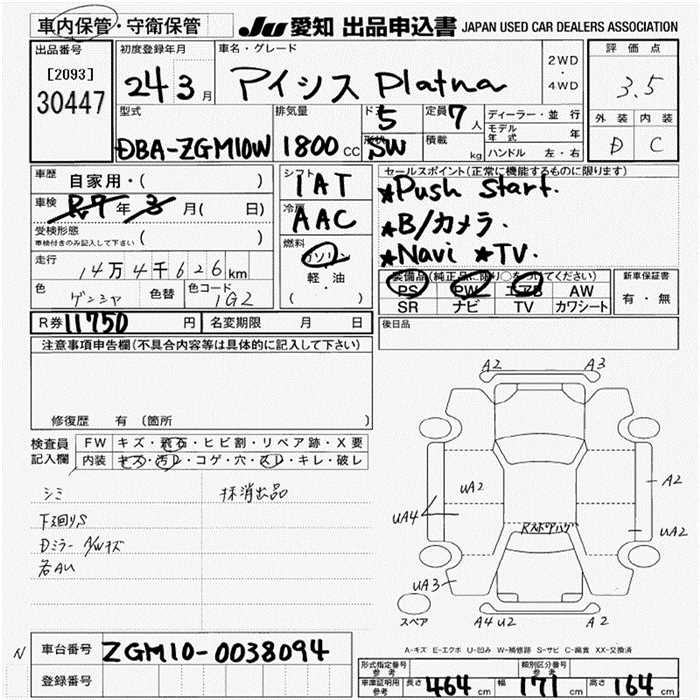 車内保管・守衛保管 JU 愛知 出品申込書 JAPAN USED CAR DEALERS ASSOCIATION
出品番号 [2093] 30447
初度登録年月 24 3月
車名・グレード アイシス Platna
2WD・4WD
評価点 3.5
外装 D 内装 C
型式 DBA-ZGM10W
排気量 1800 cc
ドア 5
形状 SW
定員 7人
積載 kg
ディーラー・並行
モデル年式 年
ハンドル 左・右
車歴 自家用・( )
車検 R7年 3月( 日)
受検形態 車検付きのみ記入して下さい ( )
走行 14万4千626km
色 ゲンシャ 色替 色コード 1G2
シフト IAT
冷房 AAC
燃料 ガソリン・軽・油 ( )
セールスポイント(正常に機能するものに限ります)
★Push Start.
★B/カメラ.
★Navi ★TV.
装備品(純正品に限り○をつけてください)
PS PW エアB AW
SR ナビ TV カワシート
新車保証書 有・無
R券 11750 円 名変期限 月 日
後日品
注意事項申告欄(不具合内容等は具体的に記入して下さい)
修復歴 有 〔箇所 〕
検査員記入欄
FW キズ・飛石・ヒビ割・リペア跡・X要
内装 キズ・汚レ・コゲ・穴・スレ・キレ・破レ
シミ 抹消出品
下廻りS
Dミラー A/Wキズ
各AU
A2 A3
UA2 A2
UA4 UA2
UA3
A4 U2 A2
スペア
A-キズ E-エクボ U-凹み W-補修跡 S-サビ C-腐食 XX-交換済
N 車台番号 ZGM10-0038094
登録番号
形式指定番号 参考 類別区分番号 参考
車庫証明用 参考 長さ 464 cm 幅 171 cm 高さ 164 cm